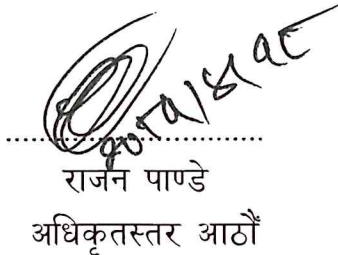 २०८१/४/१८
राजन पाण्डे
अधिकृतस्तर आठौं